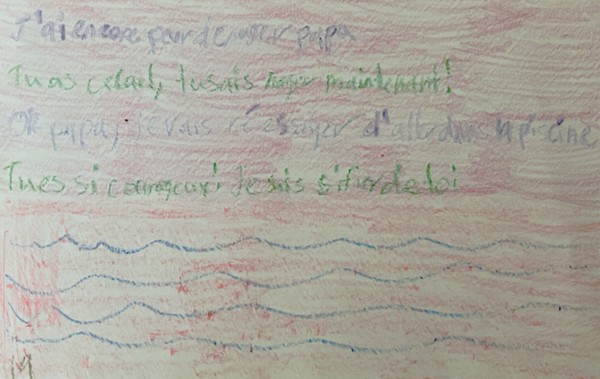 J'ai encore peur de nager papa
Tu as grandi, tu sais nager maintenant!
Ok papa, je vais réessayer d'aller dans la piscine
Tu es si courageux! Je suis si fier de toi